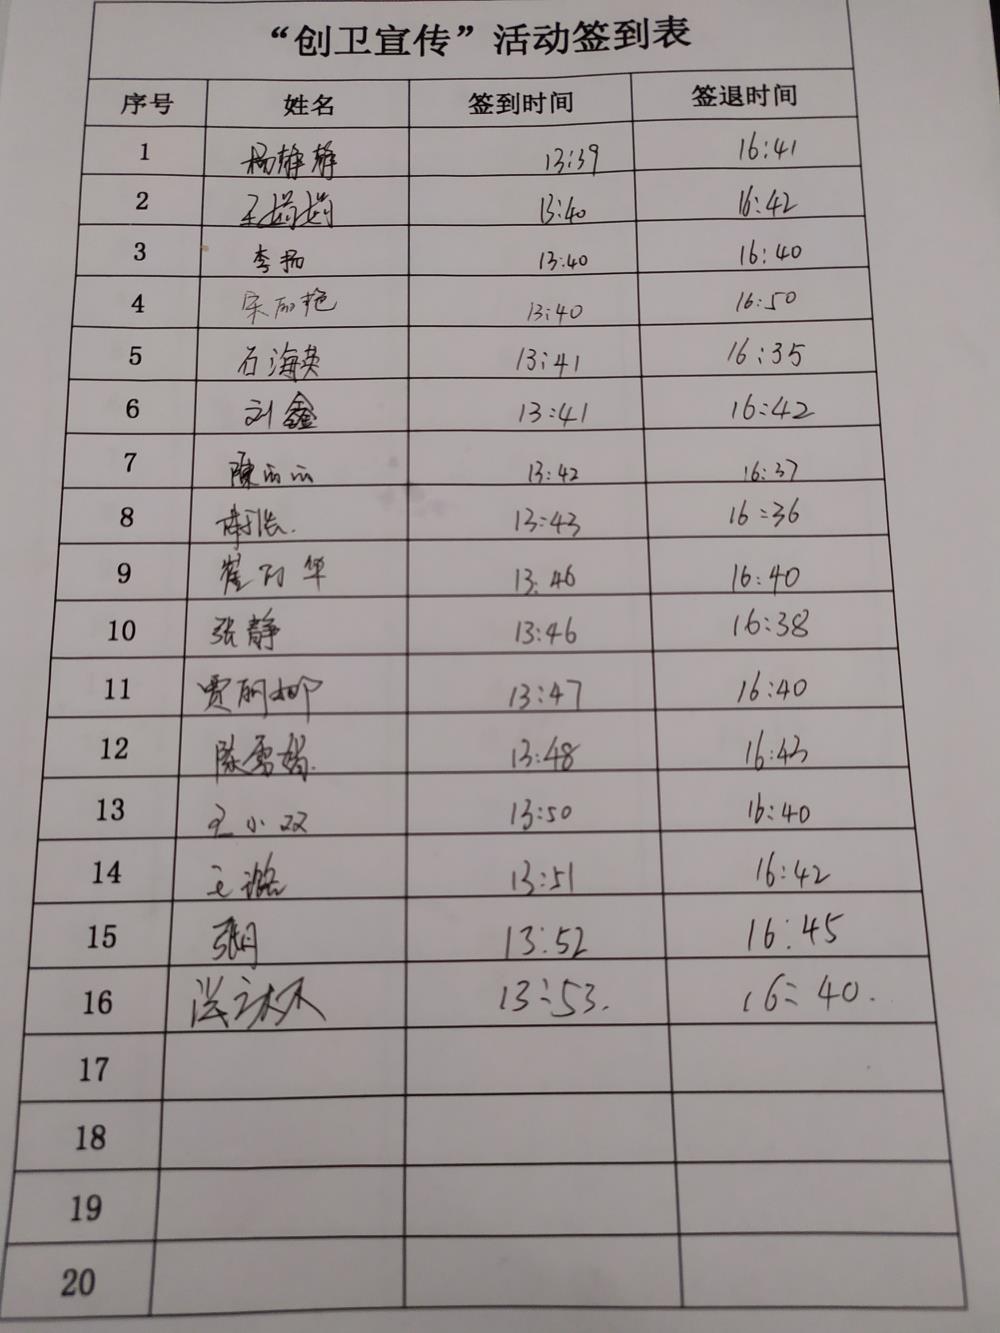 “创卫宣传”活动签到表
序号 姓名 签到时间 签退时间
1 杨静静 13:39 16:41
2 王娟娟 13:40 16:42
3 李杨 13:40 16:40
4 宋丽艳 13:40 16:50
5 石海英 13:41 16:35
6 刘鑫 13:41 16:42
7 陈丽丽 13:42 16:37
8 13:43 16:36
9 崔丽华 13:46 16:40
10 张静 13:46 16:38
11 贾丽娜 13:47 16:40
12 陈雪娟. 13:48 16:43
13 王小双 13:50 16:40
14 王璐 13:51 16:42
15 张月 13:52 16:45
16 13:53. 16:40.
17
18
19
20